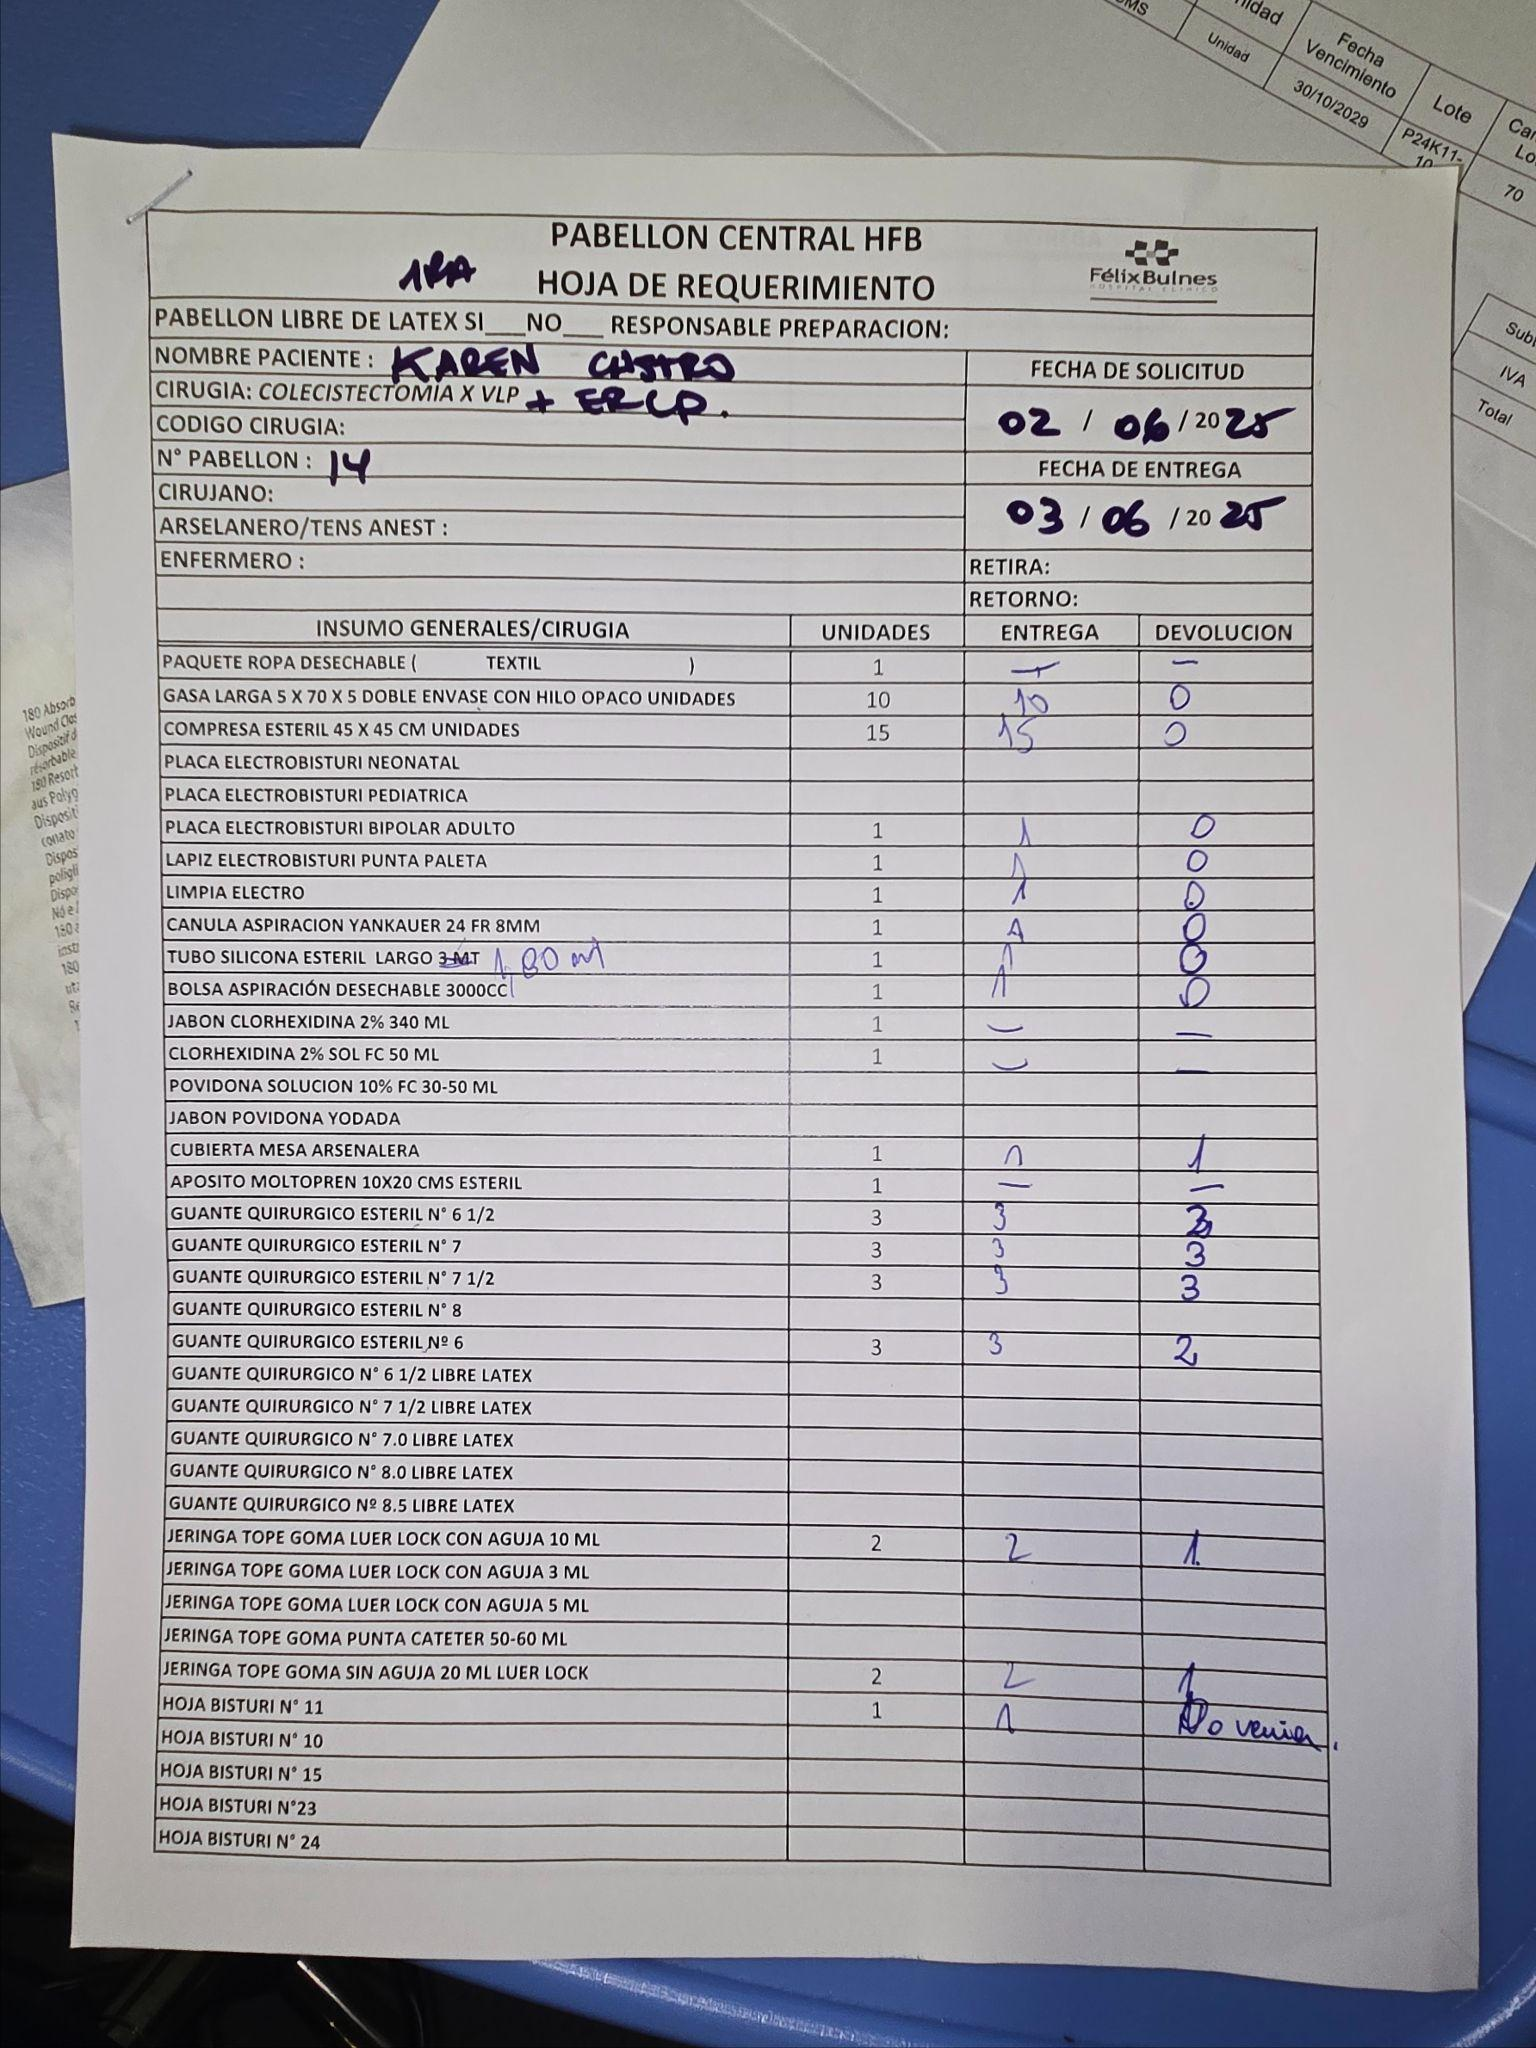 UMS
nidad
Unidad
Fecha
Vencimiento
30/10/2029
Lote
P24K11-
10
Can
Lo
70
Subt
IVA
Total
PABELLON CENTRAL HFB
1RA HOJA DE REQUERIMIENTO
FélixBulnes
HOSPITAL CLINICO
PABELLON LIBRE DE LATEX SI___NO___ RESPONSABLE PREPARACION:
NOMBRE PACIENTE : KAREN CASTRO
FECHA DE SOLICITUD
CIRUGIA: COLECISTECTOMIA X VLP + ERCP.
02 / 06 / 20 25
CODIGO CIRUGIA:
N° PABELLON : 14
FECHA DE ENTREGA
CIRUJANO:
03 / 06 / 20 25
ARSELANERO/TENS ANEST :
ENFERMERO :
RETIRA:
RETORNO:
INSUMO GENERALES/CIRUGIA UNIDADES ENTREGA DEVOLUCION
PAQUETE ROPA DESECHABLE ( TEXTIL ) 1 — —
GASA LARGA 5 X 70 X 5 DOBLE ENVASE CON HILO OPACO UNIDADES 10 10 0
COMPRESA ESTERIL 45 X 45 CM UNIDADES 15 15 0
PLACA ELECTROBISTURI NEONATAL
PLACA ELECTROBISTURI PEDIATRICA
PLACA ELECTROBISTURI BIPOLAR ADULTO 1 1 0
LAPIZ ELECTROBISTURI PUNTA PALETA 1 1 0
LIMPIA ELECTRO 1 1 0
CANULA ASPIRACION YANKAUER 24 FR 8MM 1 1 0
TUBO SILICONA ESTERIL LARGO 3 MT 1,80 mt 1 1 0
BOLSA ASPIRACIÓN DESECHABLE 3000CC 1 1 0
JABON CLORHEXIDINA 2% 340 ML 1 — —
CLORHEXIDINA 2% SOL FC 50 ML 1 — —
POVIDONA SOLUCION 10% FC 30-50 ML
JABON POVIDONA YODADA
CUBIERTA MESA ARSENALERA 1 1 1
APOSITO MOLTOPREN 10X20 CMS ESTERIL 1 — —
GUANTE QUIRURGICO ESTERIL N° 6 1/2 3 3
GUANTE QUIRURGICO ESTERIL N° 7 3 3 3
GUANTE QUIRURGICO ESTERIL N° 7 1/2 3 3 3
GUANTE QUIRURGICO ESTERIL N° 8
GUANTE QUIRURGICO ESTERIL Nº 6 3 3 2
GUANTE QUIRURGICO N° 6 1/2 LIBRE LATEX
GUANTE QUIRURGICO N° 7 1/2 LIBRE LATEX
GUANTE QUIRURGICO N° 7.0 LIBRE LATEX
GUANTE QUIRURGICO N° 8.0 LIBRE LATEX
GUANTE QUIRURGICO Nº 8.5 LIBRE LATEX
JERINGA TOPE GOMA LUER LOCK CON AGUJA 10 ML 2 2 1
JERINGA TOPE GOMA LUER LOCK CON AGUJA 3 ML
JERINGA TOPE GOMA LUER LOCK CON AGUJA 5 ML
JERINGA TOPE GOMA PUNTA CATETER 50-60 ML
JERINGA TOPE GOMA SIN AGUJA 20 ML LUER LOCK 2 2 1
HOJA BISTURI N° 11 1 1 No venia.
HOJA BISTURI N° 10
HOJA BISTURI N° 15
HOJA BISTURI N°23
HOJA BISTURI N° 24
180 Absorb
Wound Clos
Dispositif d
résorbable
180 Resort
aus Polyg
Dispositi
conato
Dispos
poligli
Dispo
180